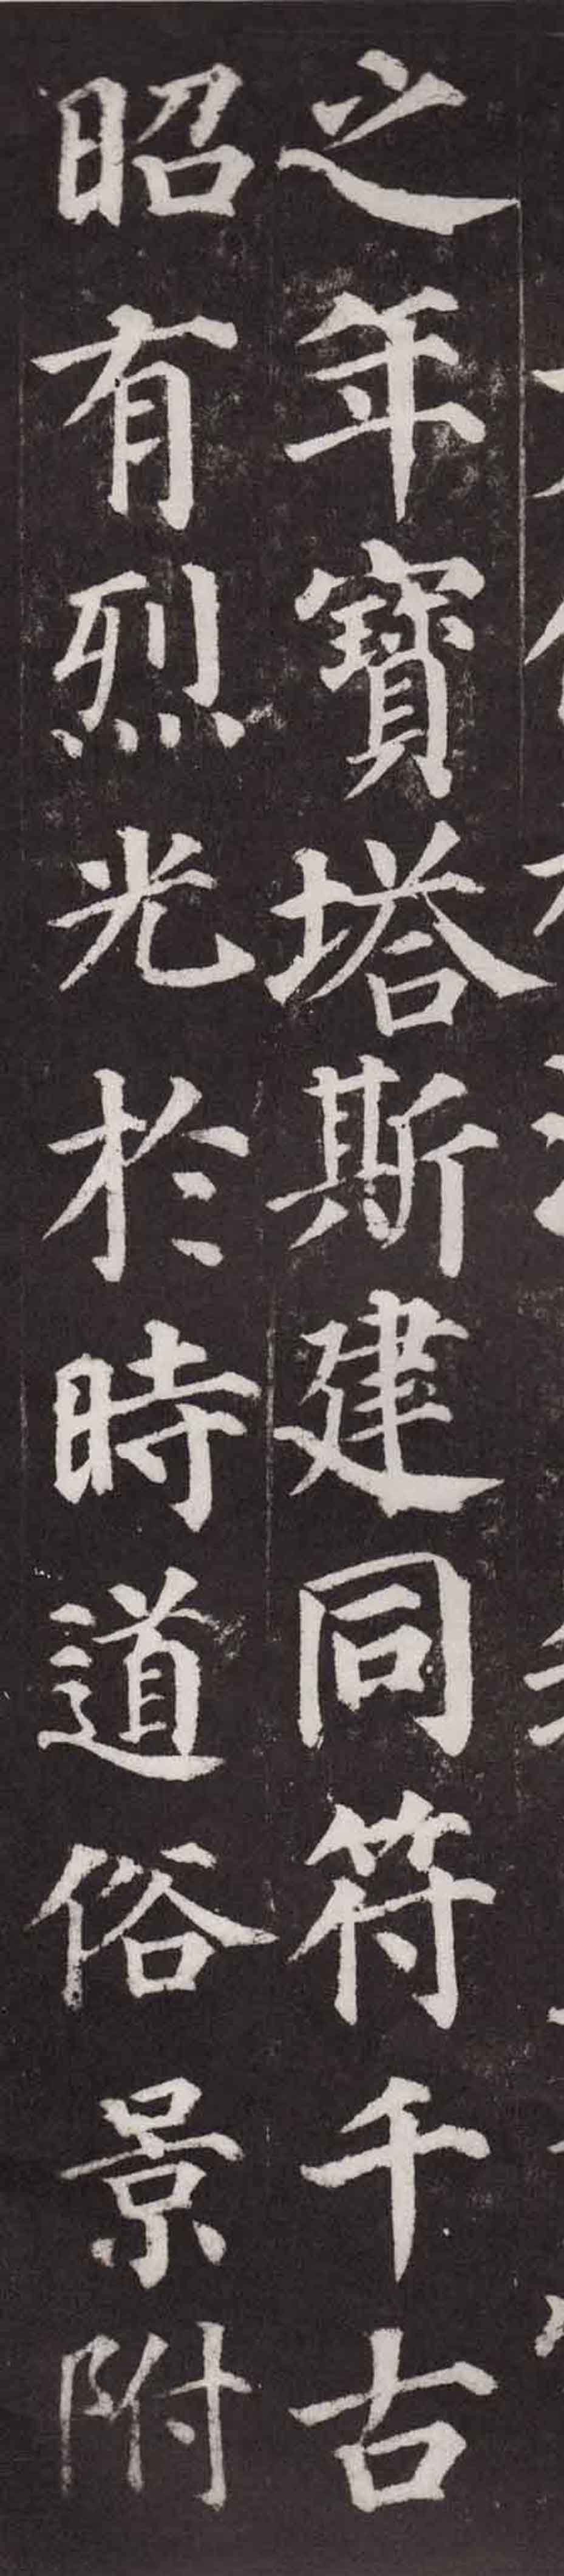 之年寶塔斯建同符千古
昭有烈光於時道俗景附